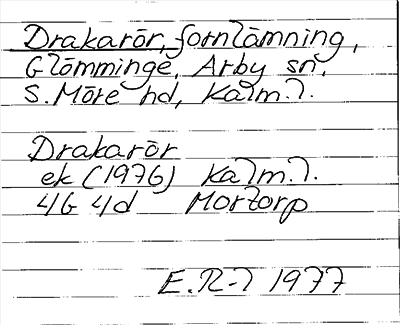 Drakarör, fornlämning,
Glömminge, Arby sn,
S. Möre hd, Kalm. l.
Drakarör
ek (1976) Kalm. l.
4G 4d Mortorp
E.R-l 1977